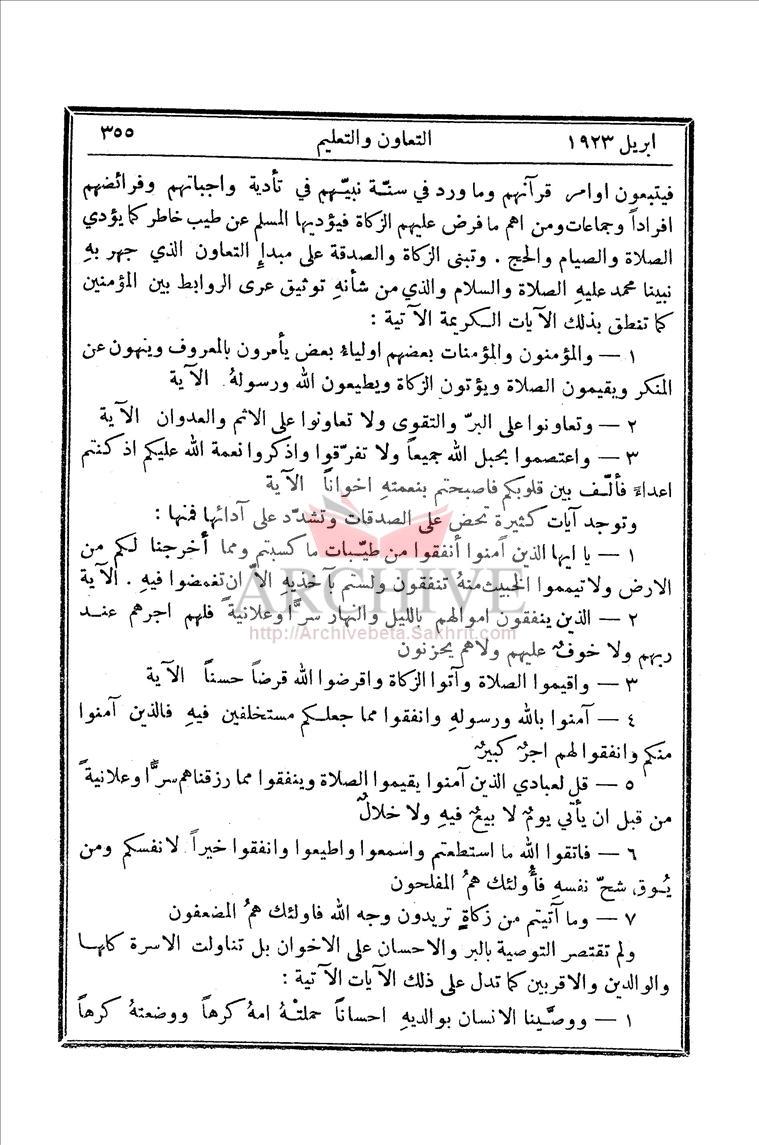 ابريل ١٩٢٣ التعاون والتعليم ٣٥٥
فيتبعون اوامر قرآنهم وما ورد في سنّة نبيّهم في تأدية واجباتهم وفرائضهم
افراداً وجماعات ومن اهم ما فرض عليهم الزكاة فيؤديها المسلم عن طيب خاطر كما يؤدي
الصلاة والصيام والحج . وتبنى الزكاة والصدقة على مبدإِ التعاون الذي جهر بهِ
نبينا محمد عليهِ الصلاة والسلام والذي من شأنهِ توثيق عرى الروابط بين المؤمنين
كما تنطق بذلك الآيات الكريمة الآتية :
١ — والمؤمنون والمؤمنات بعضهم اولياءُ بعض يأمرون بالمعروف وينهون عن
المنكر ويقيمون الصلاة ويؤتون الزكاة ويطيعون الله ورسولهُ الآية
٢ — وتعاونوا على البرّ والتقوى ولا تعاونوا على الاثم والعدوان الآية
٣ — واعتصموا بحبل الله جميعاً ولا تفرّقوا واذكروا نعمة الله عليكم اذ كنتم
اعداءً فألّف بين قلوبكم فاصبحتم بنعمتهِ اخواناً الآية
وتوجد آيات كثيرة تحض على الصدقات وتشدّد على آدائها فمنها :
١ — يا ايها الذين آمنوا أنفقوا من طيّبات ما كسبتم ومما أخرجنا لكم من
الارض ولا تيمموا الخبيث منهُ تنفقون ولستم بآخذيهِ الاّ ان تغمضوا فيهِ . الآية
ARCHIVE
٢ — الذين ينفقون اموالهم بالليل والنهار سرًّا وعلانيةً فلهم اجرهم عند
http://Archivebeta.Sakhrit.com
ربهم ولا خوفٌ عليهم ولا هم يحزنون
٣ — واقيموا الصلاة وآتوا الزكاة واقرضوا الله قرضاً حسناً الآية
٤ — آمنوا بالله ورسولهِ وانفقوا مما جعلكم مستخلفين فيهِ فالذين آمنوا
منكم وانفقوا لهم اجرٌ كبيرٌ
٥ — قل لعبادي الذين آمنوا يقيموا الصلاة وينفقوا مما رزقناهم سرًّا وعلانيةً
من قبل ان يأتي يومٌ لا بيعٌ فيهِ ولا خلالٌ
٦ — فاتقوا الله ما استطعتم واسمعوا واطيعوا وانفقوا خيراً لانفسكم ومن
يُوق شحّ نفسهِ فأُولئك همُ المفلحون
٧ — وما آتيتم من زكاةٍ تريدون وجه الله فاولئك همُ المضعفون
ولم تقتصر التوصية بالبر والاحسان على الاخوان بل تناولت الاسرة كلها
والوالدين والاقربين كما تدل على ذلك الآيات الآتية :
١ — ووصّينا الانسان بوالديهِ احساناً حملتْهُ امهُ كرهاً ووضعتهُ كرهاً